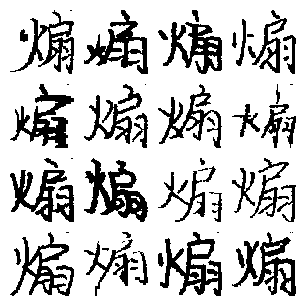 煽煽煽煽
煽煽煽煽
煽煽煽煽
煽煽煽煽